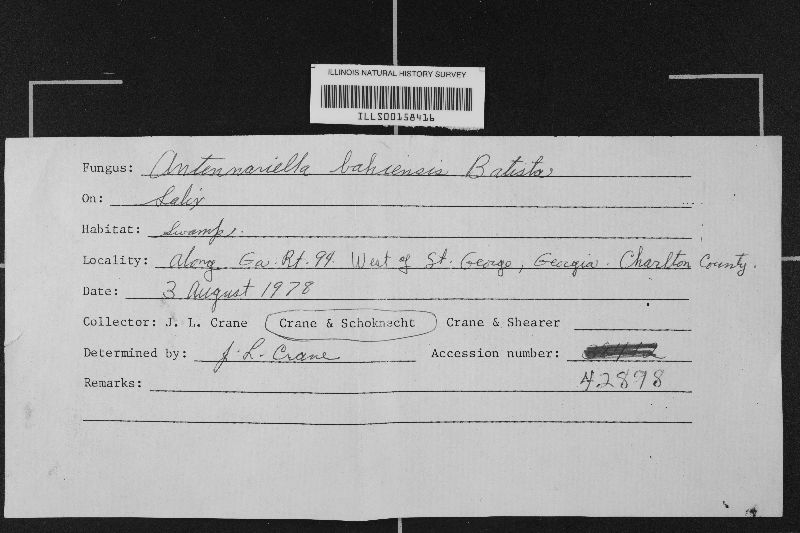 ILLINOIS NATURAL HISTORY SURVEY
ILLS00158416
Fungus: Antennariella bahiensis Batista
On: Salix
Habitat: Swamp.
Locality: Along Ga. Rt. 94. West of St. George, Georgia. Charlton County.
Date: 3 August 1978
Collector: J. L. Crane Crane & Schoknecht Crane & Shearer
Determined by: J. L. Crane Accession number:
Remarks: 42898